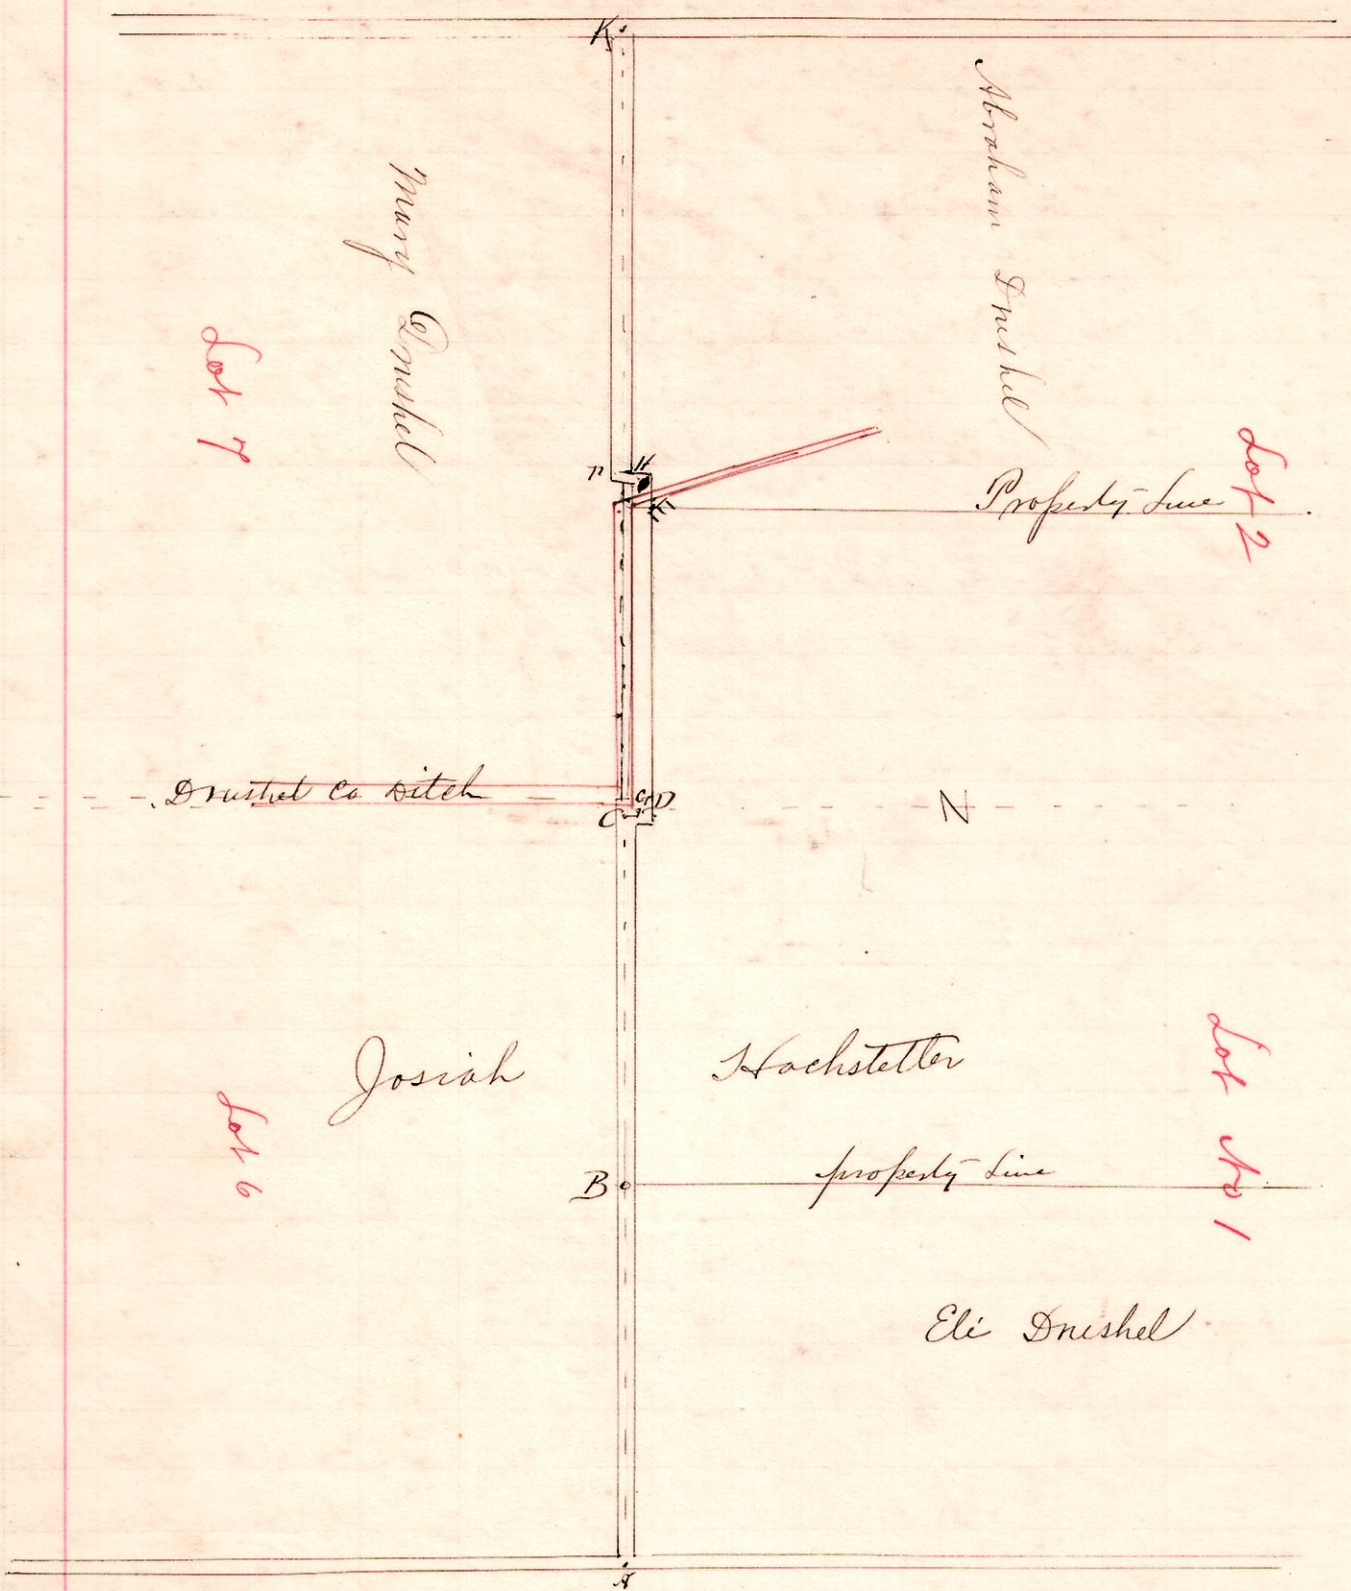 K
Abraham Drushel
Mary Drushel
Lot 7
Lot 2
H
E
Property Line
Drushel Co Ditch
C
G
D
N
Josiah Hochstetler
Lot No 1
Lot 6
B
property Line
Eli Drushel
A